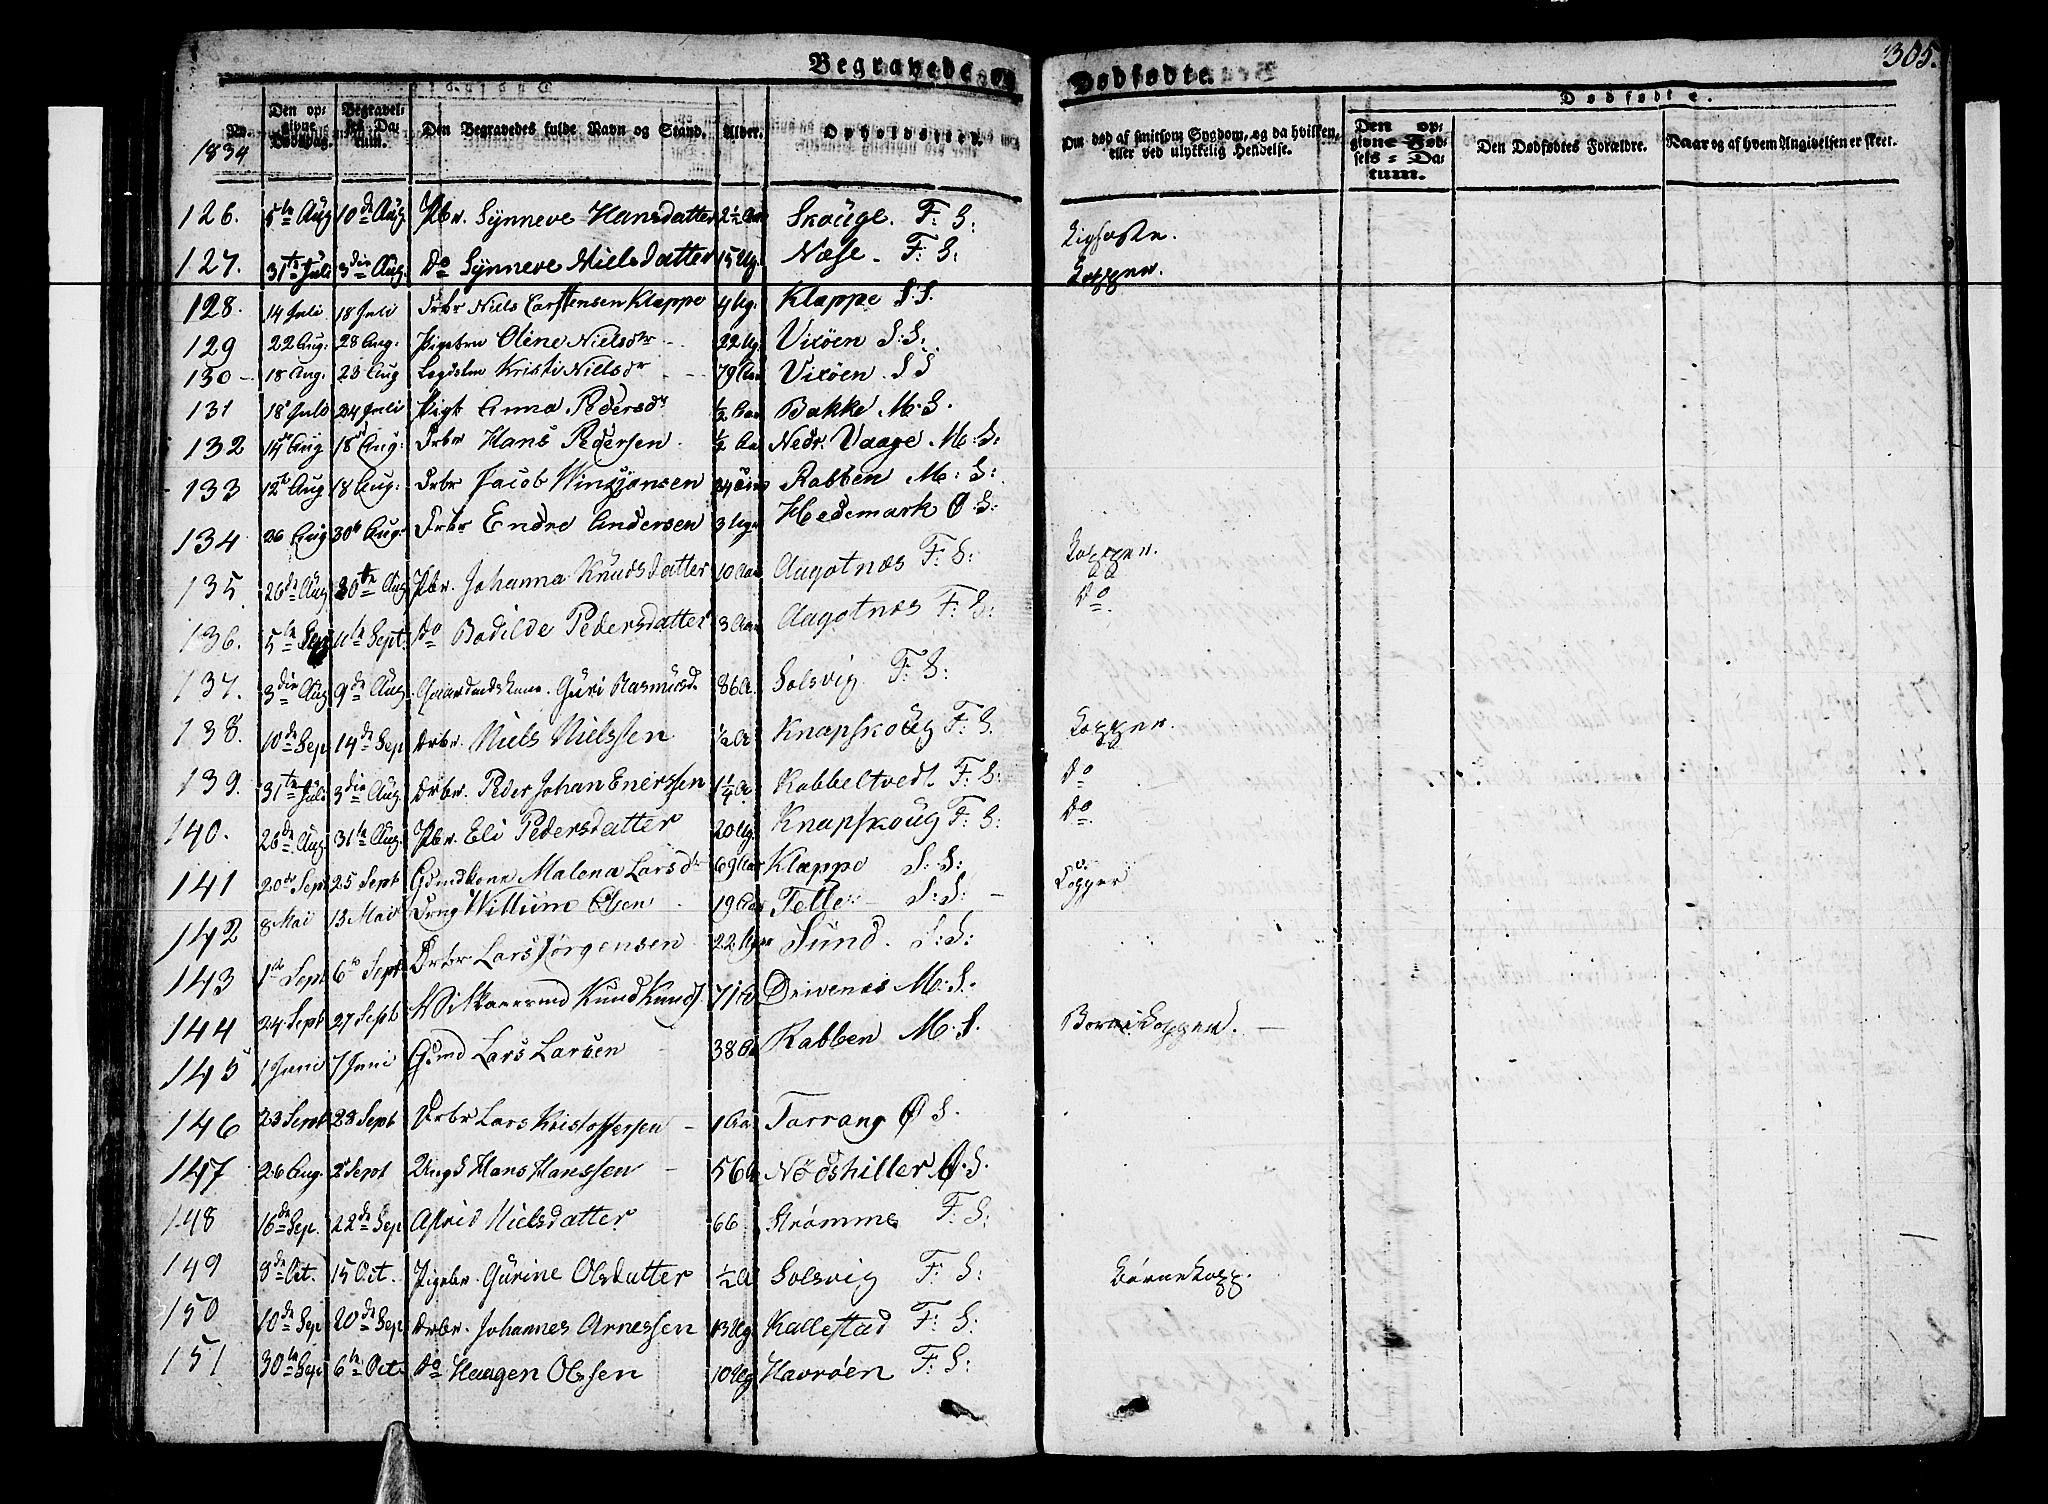 Begravede og Dødfødte.
305.
No. Den opgivne Dødsdag. Begravelses Datum. Den Begravedes fulde Navn og Stand. Alder. Opholdssted. Om død af smitsom Sygdom, og da hvilken, eller ved ulykkelig Hendelse. Dødfødte. Den opgivne Fødsels-Datum. Den Dødfødtes Forældre. Naar og af hvem Angivelsen er skeet.
1834
126. 5te Aug 10de Aug Pbr. Synneve Hansdatter 2½ Aar Skouge. F: S:
127. 31te Juli 3die Aug. Do Synneve Nielsdatter 15 Ug. Næse. F: S: Kopper.
128. 14 Juli 18 Juli Drbr Niels Carstensen Klappe 9 Ug. Klappe S.S.
129 22 Aug. 28 Aug. Pigebrn Oline Nielsdtr 22 Ug. Vixöen S:S:
130 18 Aug. 23 Aug Kristi Nielsdr 79 Aar Vixöen. S S
131 18 Juli 24 Juli Pigt Anna Pedersdr ½ Aar Bakke M. S.
132 14de Aug 18de Aug. Drbr Hans Pedersen. ½ Aar Nedr. Vaage M: S:
133 12te Aug 18 Aug. Drbr Jacob 34 Robben M: S:
134 26 Aug 30te Aug. Drbr Endre Andersen 3 Uger Hedemark Ø S: Kopper.
135. 26de Aug 30te Aug Pbr. Johanna Knudsdatter 10 Aar Aagotnæs F: S: Do
136. 5te Sep 11te Sept. Do Bodilde Pedersdatter 3 Aar Aagotnæs F: S:
137. 3die Aug 9de Aug Gaardmdskone. Guri Rasmusd. 86 A. Solsvig F: S:
138. 10de Sep 14de Sep Drbr. Niels Nielssen ½ A Knapskoug F: S. Kopper.
139. 31te Juli 3die Aug. Drbr. Peder Johan Enerssen 1¼ A. Kobbeltvedt. F: S: Do
140. 26de Aug. 31te Aug. Pbr. Eli Pedersdatter 20 Ug. Knapskoug F: S: Do
141 20de Sept 25 Sept Gmdkone Malena Larsdr 69 Aar Klappe S: S: Kopper
142 8 Mai 13 Mai Drng Willum Olsen 19 Aar Telle S: S:
143 1ste Sept 6te Sept Drbr Lars Jørgensen 22 Uger Sund. S: S:
144 24 Sept 27 Sept Knud Knuds. 71 A Drivenæs M: S. Börnekopper.
145 1 Juni 7 Juni Gmd Lars Larsen 38 Aa Rabben M. S.
146 23 Sept 28 Sept Drbr Lars Kristoffersen 1 Aa. Torrang Ø S.
147 26 Aug. 2 Sept Ungd Hans Hanssen 56 Nödshiller Ø. S.
148 16de Sep. 22de Sep Astrid Nielsdatter 66 Strømme F: S:
149 8de Oct. 15 Oct. Pigebr. Gurine Olsdatter ½ A Solsvig F: S: Börnekopp.
150 10de Sep 20de Sep Drbr. Johannes Arnessen 13 Ug Kallestad F: S:
151 30te Sep 6te Oct. Do Haagen Olssen 10 Ug Havröen F: S: